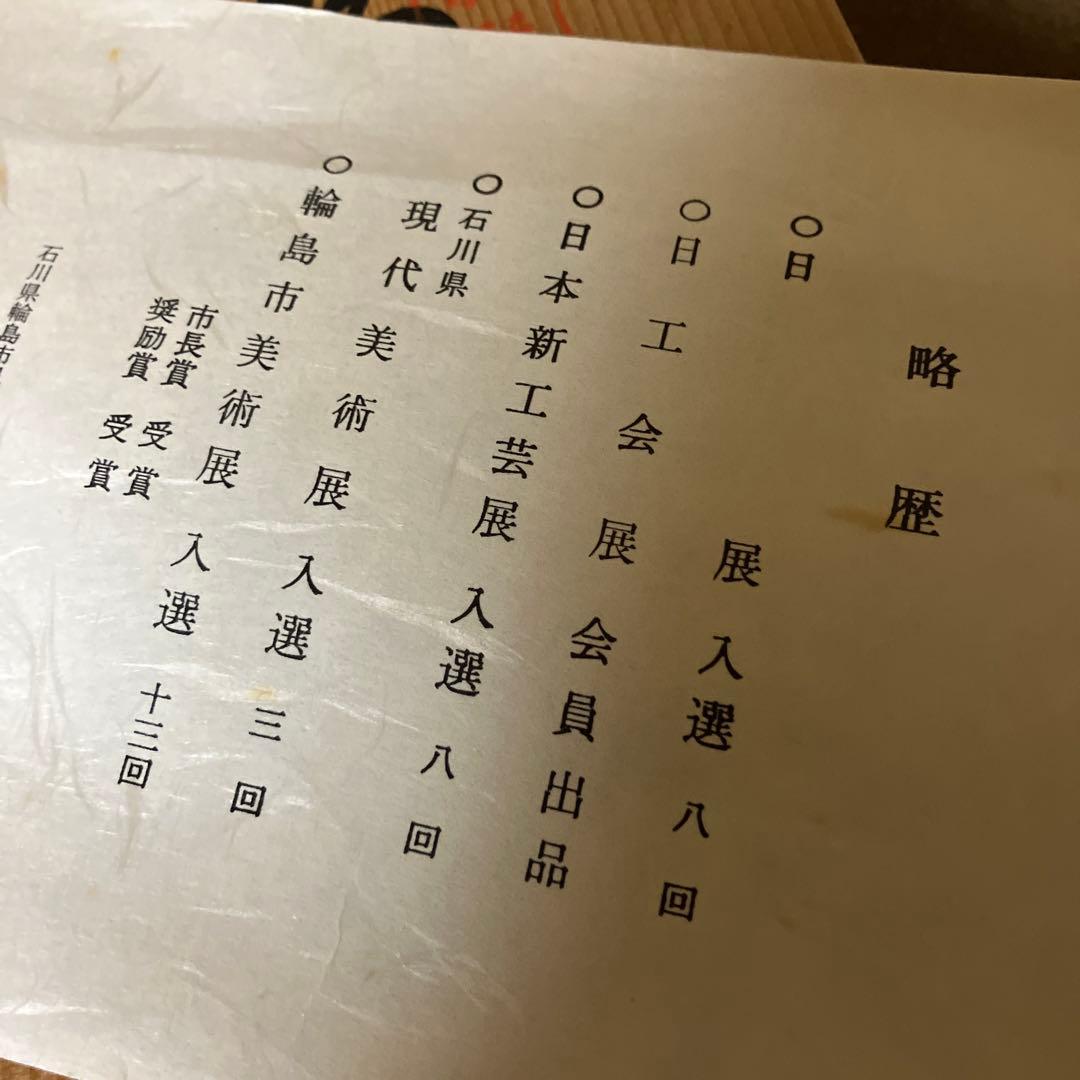 略歴
〇日展入選八回
〇日工会展会員出品
〇日本新工芸展入選八回
〇石川県
現代美術展入選三回
〇輪島市美術展入選十三回
市長賞受賞
奨励賞受賞
石川県輪島市